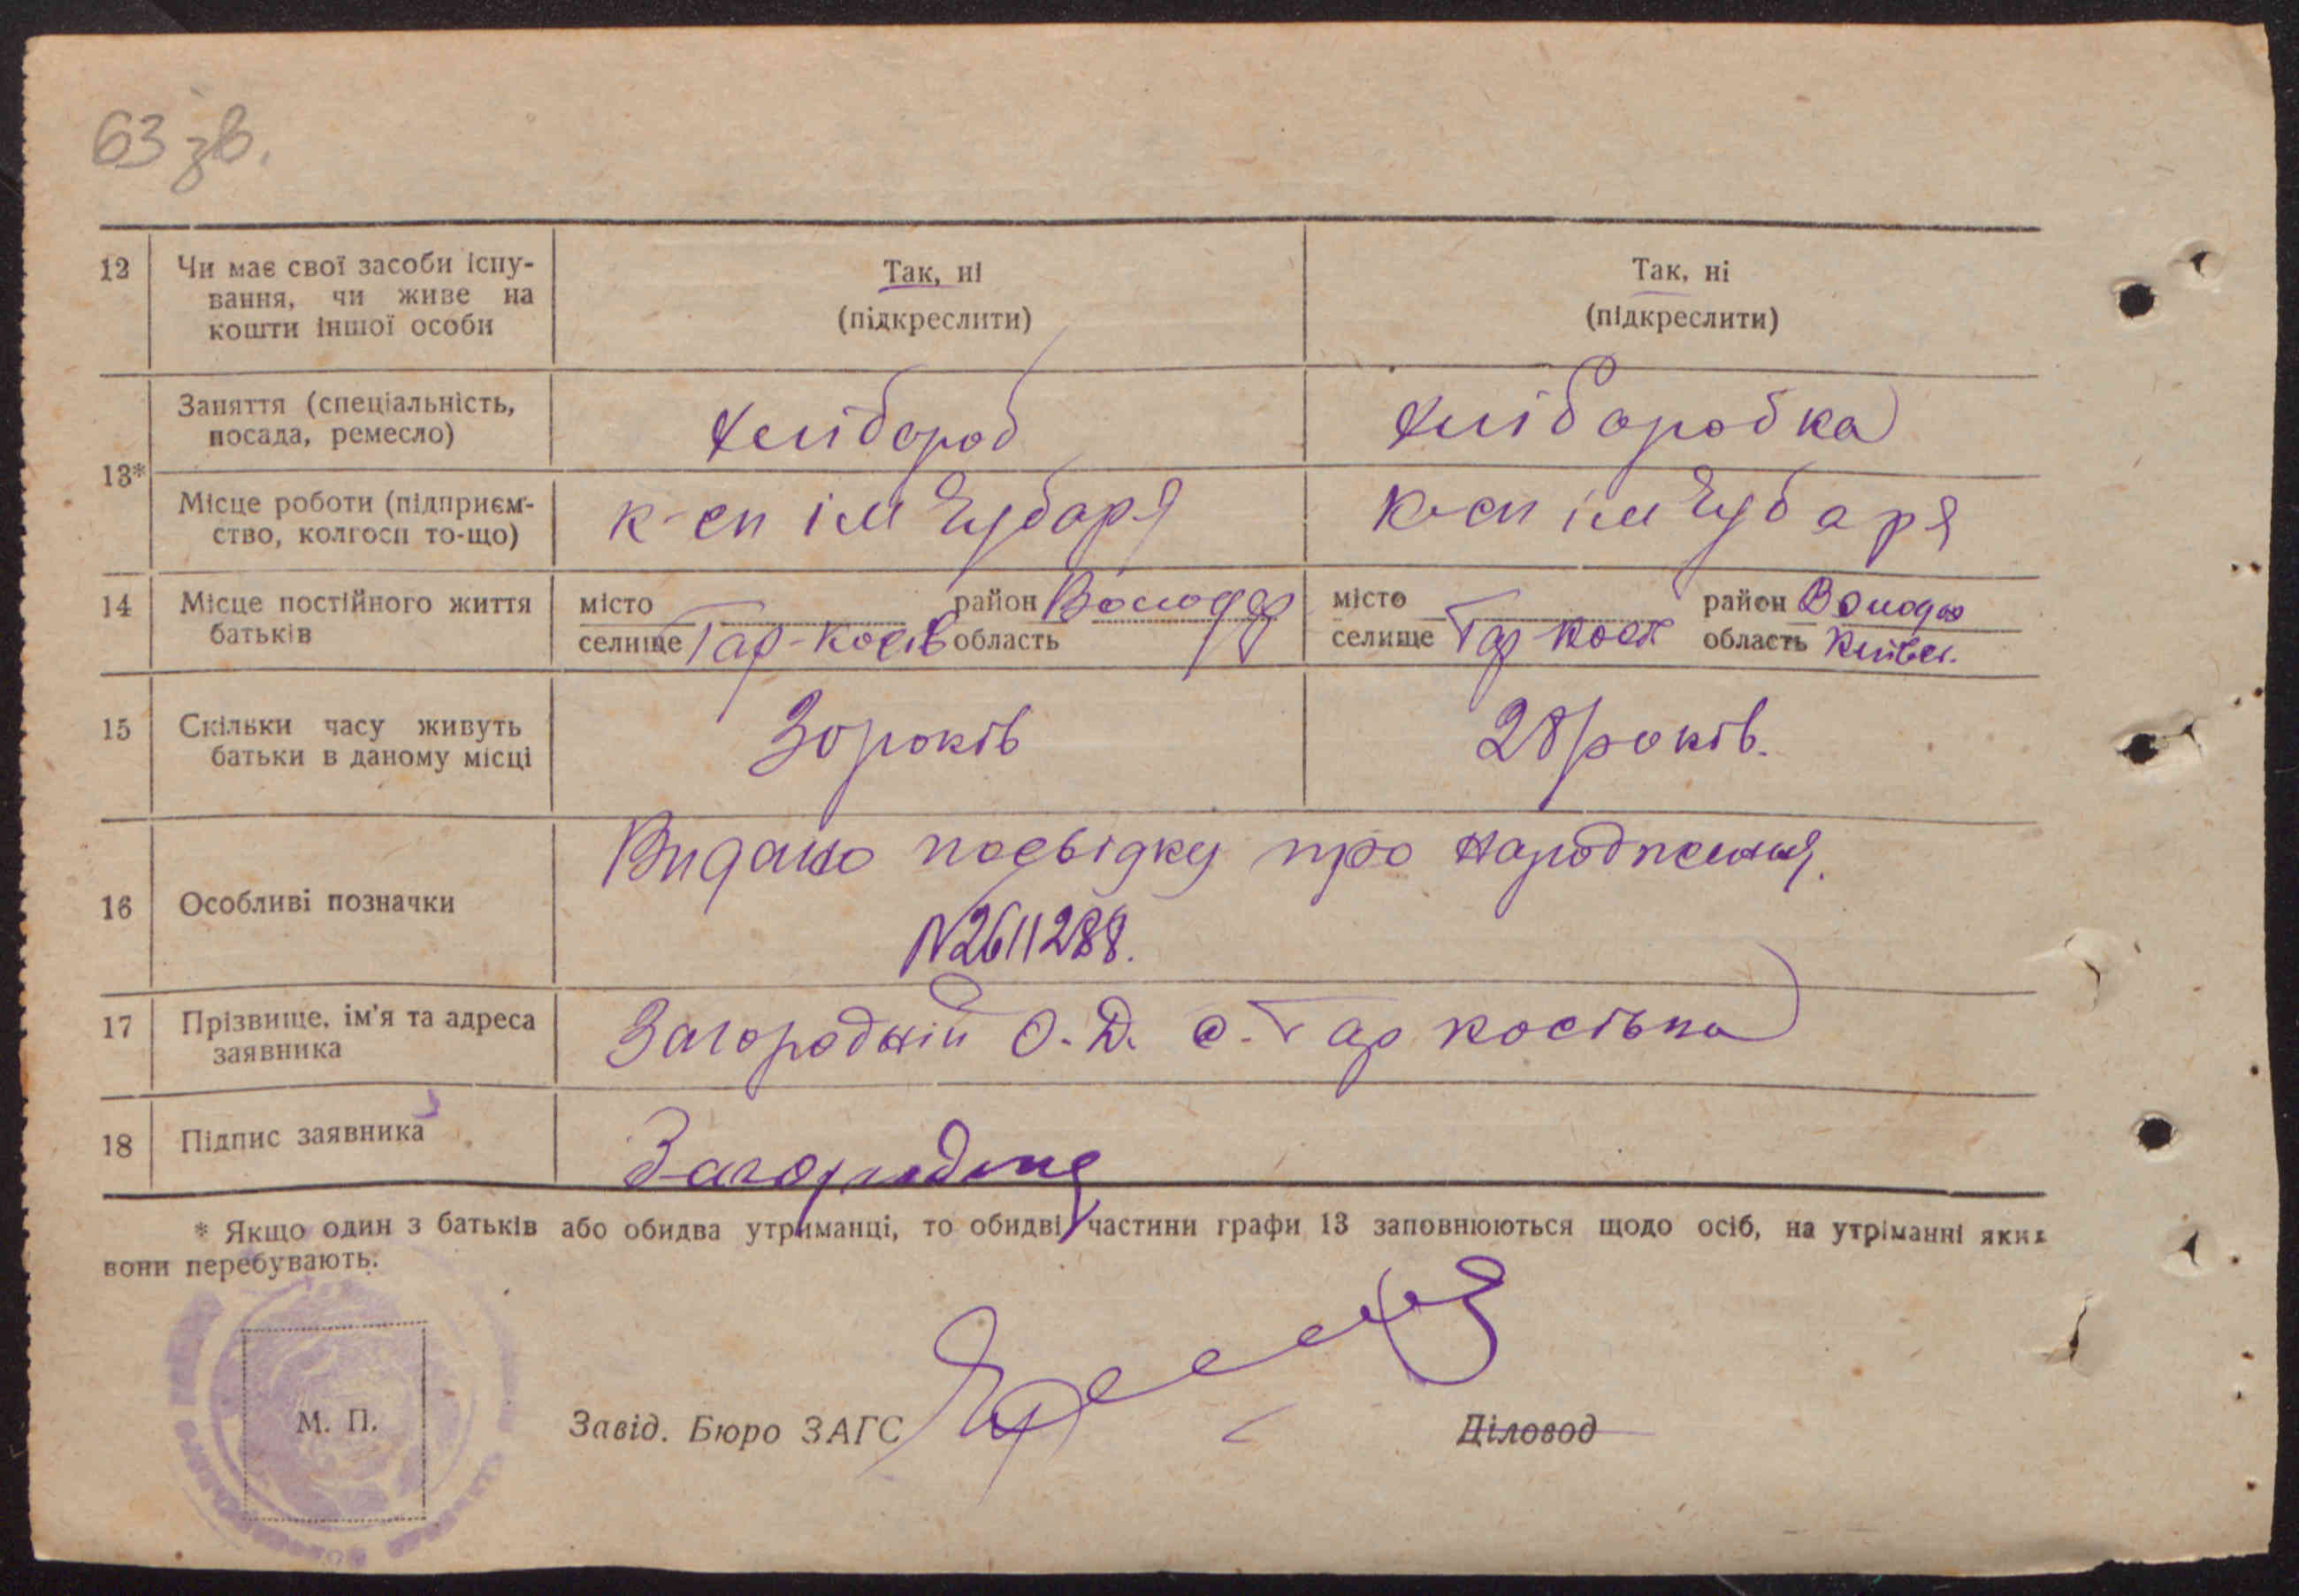 63 зв.
12 Чи має свої засоби існу-
вання, чи живе на
кошти іншої особи
Так, ні
(підкреслити)
Так, ні
(підкреслити)
13*
Заняття (спеціальність,
посада, ремесло)
хлібороб
хліборобка
Місце роботи (підприєм-
ство, колгосп то-що)
к-сп ім Чубаря
к-сп ім Чубаря
14 Місце постійного життя
батьків
місто район Волода
селище Гар-Косів область
місто район Волода
селище Гар Косів область Київс.
15 Скільки часу живуть
батьки в даному місці
30 років
28 років.
16 Особливі позначки
Видано посвідку про народження.
N2611288.
17 Прізвище, ім'я та адреса
заявника
Загородній О. Д. с. Гар косівка
18 Підпис заявника
Загородний
* Якщо один з батьків або обидва утриманці, то обидві частини графи 13 заповнюються щодо осіб, на утріманні яких
вони перебувають.
М. П.
Завід. Бюро ЗАГС
Діловод